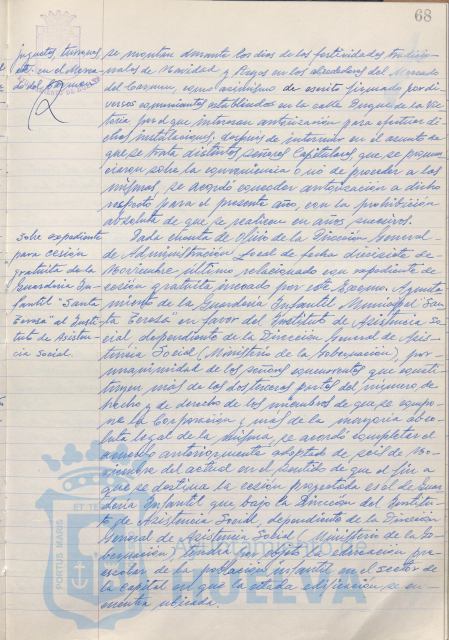 68
juguetes, turrones,
etc. en el Merca-
do del Carmen
se montan durante los dias de las festividades tradicio-
nales de Navidad y Reyes en los alrededores del Mercado
del Carmen, como asimismo de escrito firmado por di-
versos comerciantes establecidos en la calle Duque de la Vic-
toria por el que interesan autorización para efectuar di-
chas instalaciones; después de intervenir en el asunto de
que se trata distintos señores Capitulares, que se pronun-
ciaron sobre la conveniencia o no de proceder a las
mismas, se acordó conceder autorización a dicho
respecto para el presente año, con la prohibición
absoluta de que se realicen en años sucesivos.
Sobre expediente
para cesión
gratuita de la
Guardería In-
fantil "Santa
Teresa" al Insti-
tuto de Asisten-
cia Social.
Dada cuenta de oficio de la Dirección General
de Administración Local de fecha diecisiete de
Noviembre último relacionado con expediente de
cesión gratuita incoado por este Excmo. Ayunta-
miento de la Guardería Infantil Municipal "San-
ta Teresa" en favor del Instituto de Asistencia So-
cial, dependiente de la Dirección General de Asis-
tencia Social (Ministerio de la Gobernación), por
unanimidad de los señores concurrentes que consti-
tuyen más de las dos terceras partes del número de
hecho y de derecho de los miembros de que se compo-
ne la Corporación y más de la mayoría abso-
luta legal de la misma, se acordó completar el
acuerdo anteriormente adoptado de seis de No-
viembre del actual en el sentido de que el fin a
que se destina la cesión proyectada es el de Guar-
dería Infantil que bajo la Dirección del Institu-
to de Asistencia Social, dependiente de la Dirección
General de Asistencia Social (Ministerio de la Go-
bernación) tendrá por objeto la educación pre-
escolar de la población infantil en el sector de
la capital en que la citada edificación se en-
cuentra ubicada.
PORTUS MARIS
ET TE
HUELVA